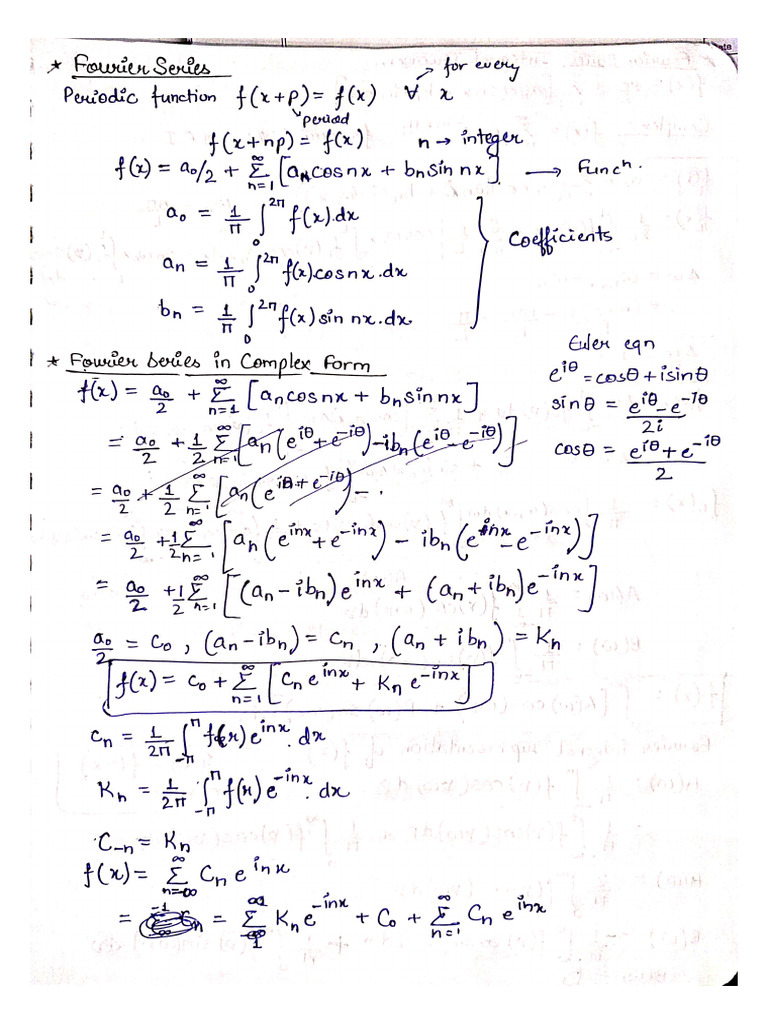 * Fourier Series
→ for every
Periodic function f(x+p) = f(x) ∀ x
↘ period
f(x+np) = f(x) n → integer
f(x) = a₀/2 + Σ_{n=1}^{∞} [aₙ cos nx + bₙ sin nx] → Funcⁿ.
a₀ = 1/π ∫₀^{2π} f(x).dx
aₙ = 1/π ∫₀^{2π} f(x) cos nx.dx } Coefficients
bₙ = 1/π ∫₀^{2π} f(x) sin nx.dx
* Fourier Series in Complex Form
Euler eqn
e^{iθ} = cosθ + isinθ
sinθ = (e^{iθ} - e^{-iθ})/2i
cosθ = (e^{iθ} + e^{-iθ})/2
f(x) = a₀/2 + Σ_{n=1}^{∞} [aₙ cos nx + bₙ sin nx]
= a₀/2 + 1/2 Σ_{n=1}^{∞} [aₙ(e^{iθ} + e^{-iθ}) - ibₙ(e^{iθ} - e^{-iθ})]
= a₀/2 + 1/2 Σ_{n=1}^{∞} [aₙ(e^{iθ} + e^{-iθ}) - .
= a₀/2 + 1/2 Σ_{n=1}^{∞} [aₙ(e^{inx} + e^{-inx}) - ibₙ(e^{inx} - e^{-inx})]
= a₀/2 + 1/2 Σ_{n=1}^{∞} [(aₙ - ibₙ)e^{inx} + (aₙ + ibₙ)e^{-inx}]
a₀/2 = C₀, (aₙ - ibₙ) = Cₙ, (aₙ + ibₙ) = Kₙ
f(x) = C₀ + Σ_{n=1}^{∞} [Cₙ e^{inx} + Kₙ e^{-inx}]
Cₙ = 1/2π ∫_{-π}^{π} f(x) e^{inx}.dx
Kₙ = 1/2π ∫_{-π}^{π} f(x) e^{-inx}.dx
C₋ₙ = Kₙ
f(x) = Σ_{n=-∞}^{∞} Cₙ e^{inx}
= Σ Kₙ e^{-inx} + C₀ + Σ_{n=1}^{∞} Cₙ e^{inx}